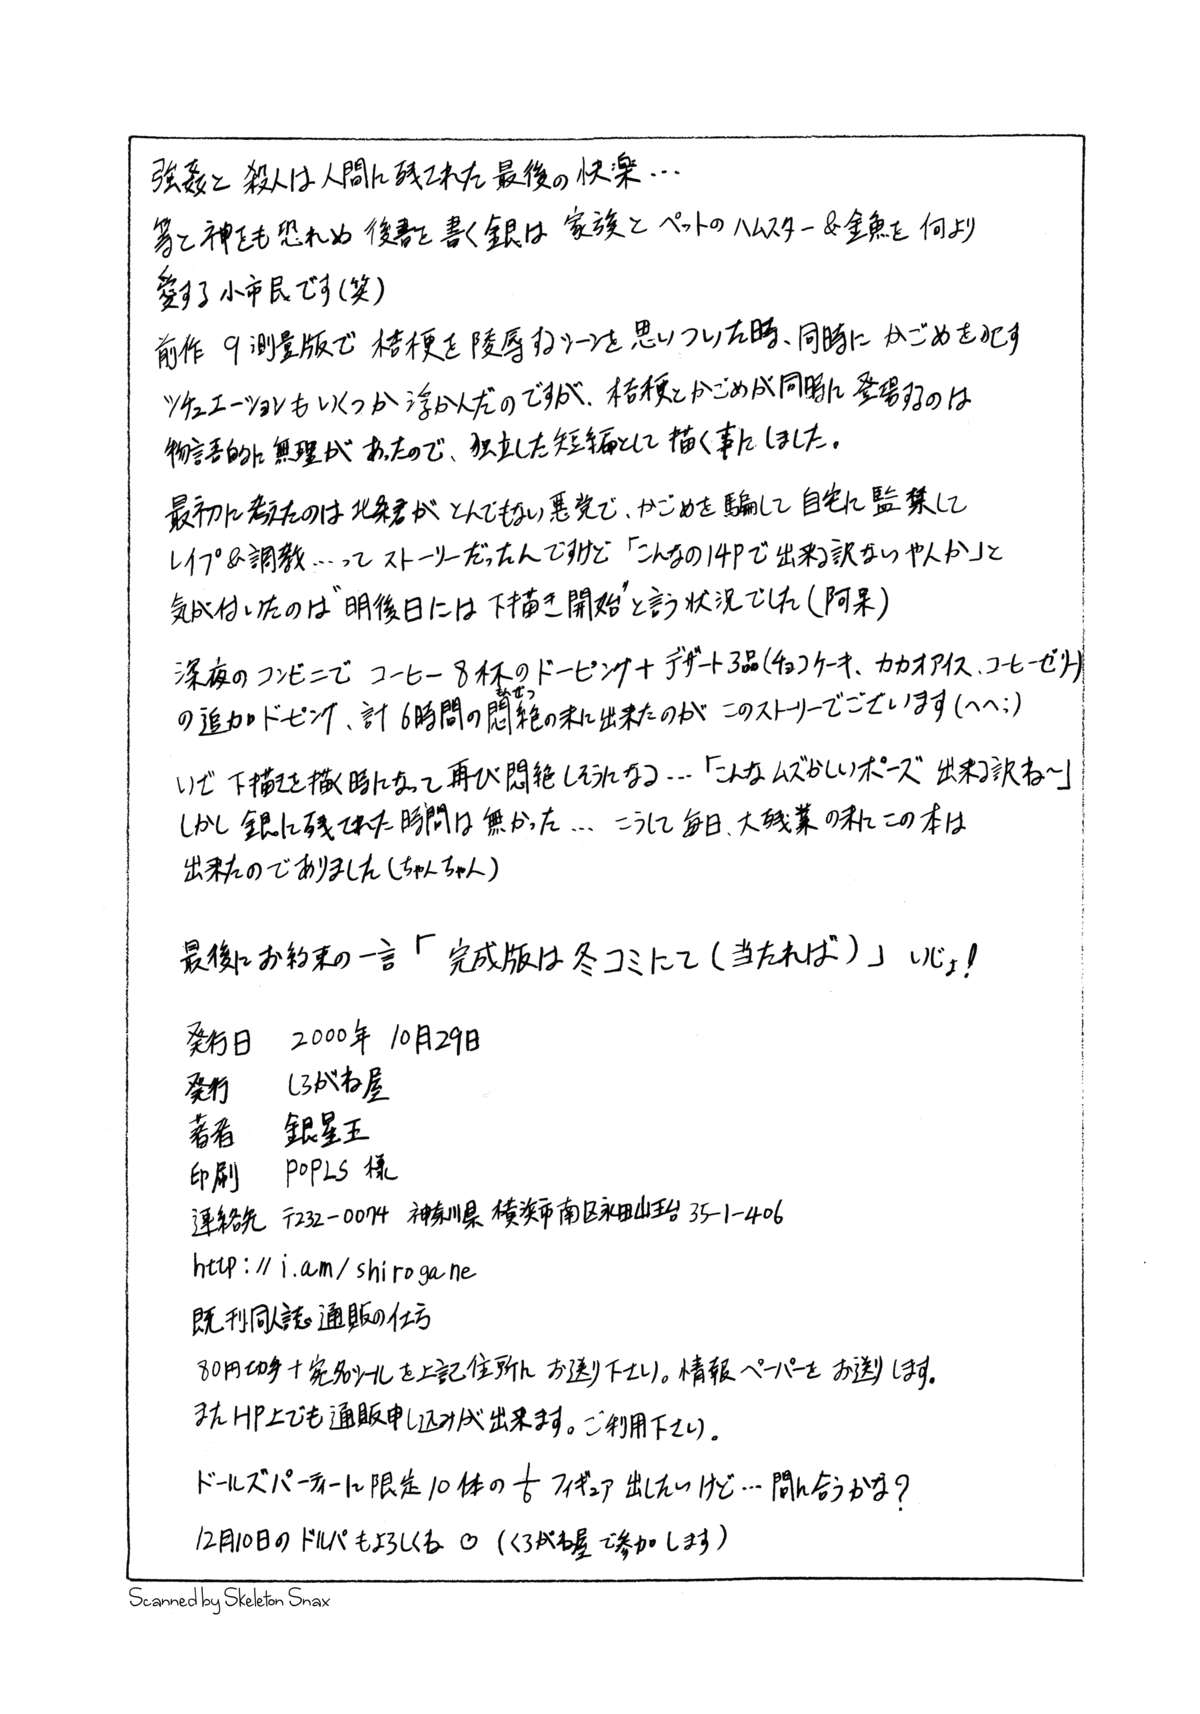 強姦と殺人は人間に残された最後の快楽…
等と神をも恐れぬ後書を書く銀は家族とペットのハムスター&金魚を何より
愛する小市民です(笑)
前作 9測量版で桔梗を陵辱するシーンを思いついた時、同時にかごめを犯す
シチュエーションもいくつか浮かんだのですが、桔梗とかごめが同時に登場するのは
物語的に無理があったので、独立した短編として描く事にしました。
最初に考えたのは北条君がとんでもない悪党で、かごめを騙して自宅に監禁して
レイプ&調教…ってストーリーだったんですけど「こんなの14Pで出来る訳ないやんか」と
気が付いたのは"明後日には下描き開始"と言う状況でした(阿呆)
深夜のコンビニでコーヒー8杯のドーピング+デザート3品(チョコケーキ、カカオアイス、コーヒーゼリー)
の追加ドーピング、計6時間の悶絶の末に出来たのがこのストーリーでございます(^^;)
いざ下描きを描く時になって再び悶絶しそうになる…「こんなムズかしいポーズ出来る訳ね〜」
しかし銀に残された時間は無かった… こうして毎日、大残業の末にこの本は
出来たのでありました(ちゃんちゃん)
最後にお約束の一言「完成版は冬コミにて(当たれば)」いじょ!
発行日 2000年 10月29日
発行 しろがね屋
著者 銀星王
印刷 POPLS 様
連絡先 〒232-0074 神奈川県横浜市南区永田山王台35-1-406
http://i.am/shirogane
既刊同人誌通販の仕方
80円切手+宛名シールを上記住所にお送り下さい。情報ペーパーをお送りします。
またHP上でも通販申し込みが出来ます。ご利用下さい。
ドールズパーティーに限定10体の1/6フィギュア出したいけど…間に合うかな?
12月10日のドルパもよろしくね♡(くろがね屋で参加します)
Scanned by Skeleton Snax